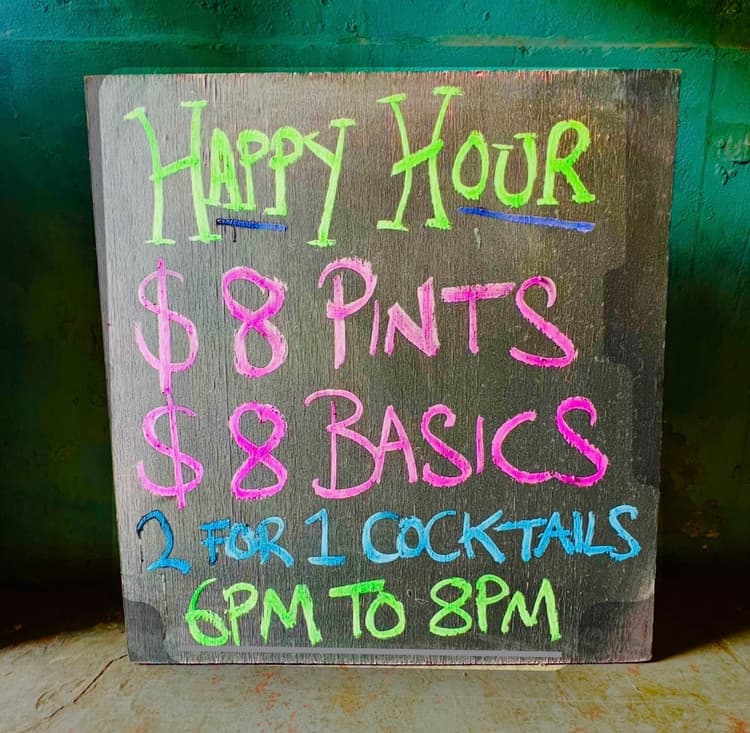 HAPPY HOUR
$8 PINTS
$8 BASICS
2 FOR 1 COCKTAILS
6PM TO 8PM